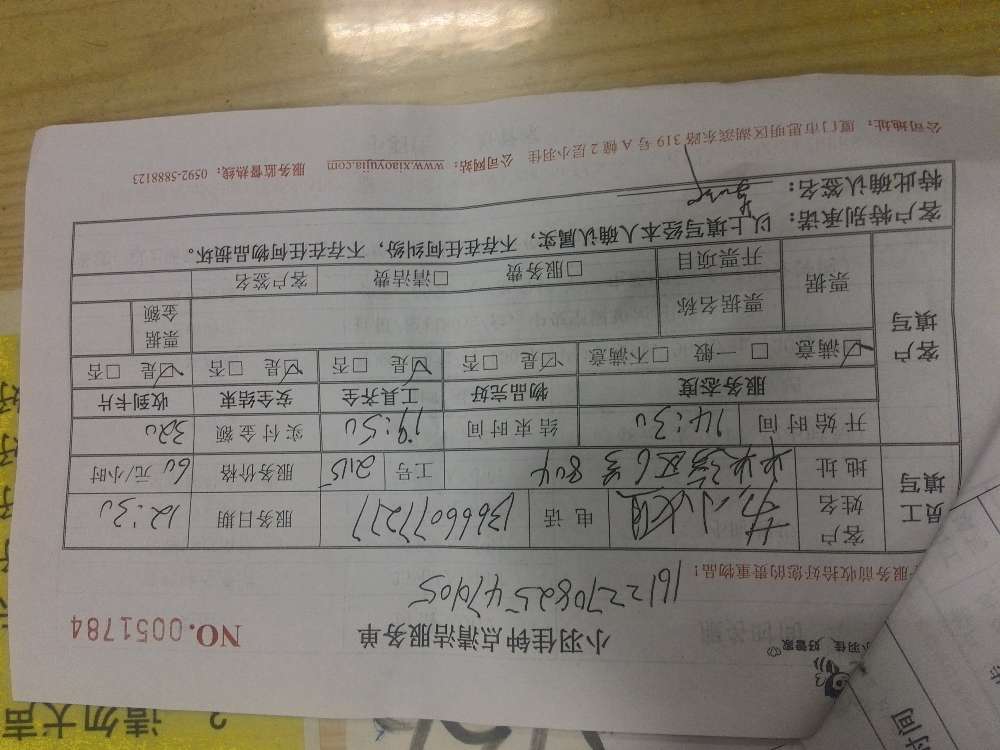 小羽佳 好管家
小羽佳钟点清洁服务单
NO.0051784
16122708254705
服务前收拾好您的贵重物品!
员工填写
客户姓名
小姐
电话
13666077277
服务日期
12:30
地址
6号804
工号
215
服务价格
60 元/小时
客户填写
开始时间
14:30
结束时间
19:50
实付金额
320
服务态度
物品完好
工具齐全
安全结束
收到卡片
☑满意 □一般 □不满意
☑是 □否
☑是 □否
☑是 □否
☑是 □否
票据
票据名称
票据金额
开票项目
□服务费 □清洁费
客户签名
客户特别承诺:以上填写经本人确认属实,不存在任何纠纷,不存在任何物品损坏。
特此确认签名:
公司地址:厦门市思明区湖滨东路 319 号 A 幢 2 层小羽佳 公司网站:www.xiaoyujia.com 服务监督热线:0592-5888123
2、请勿大声
时间